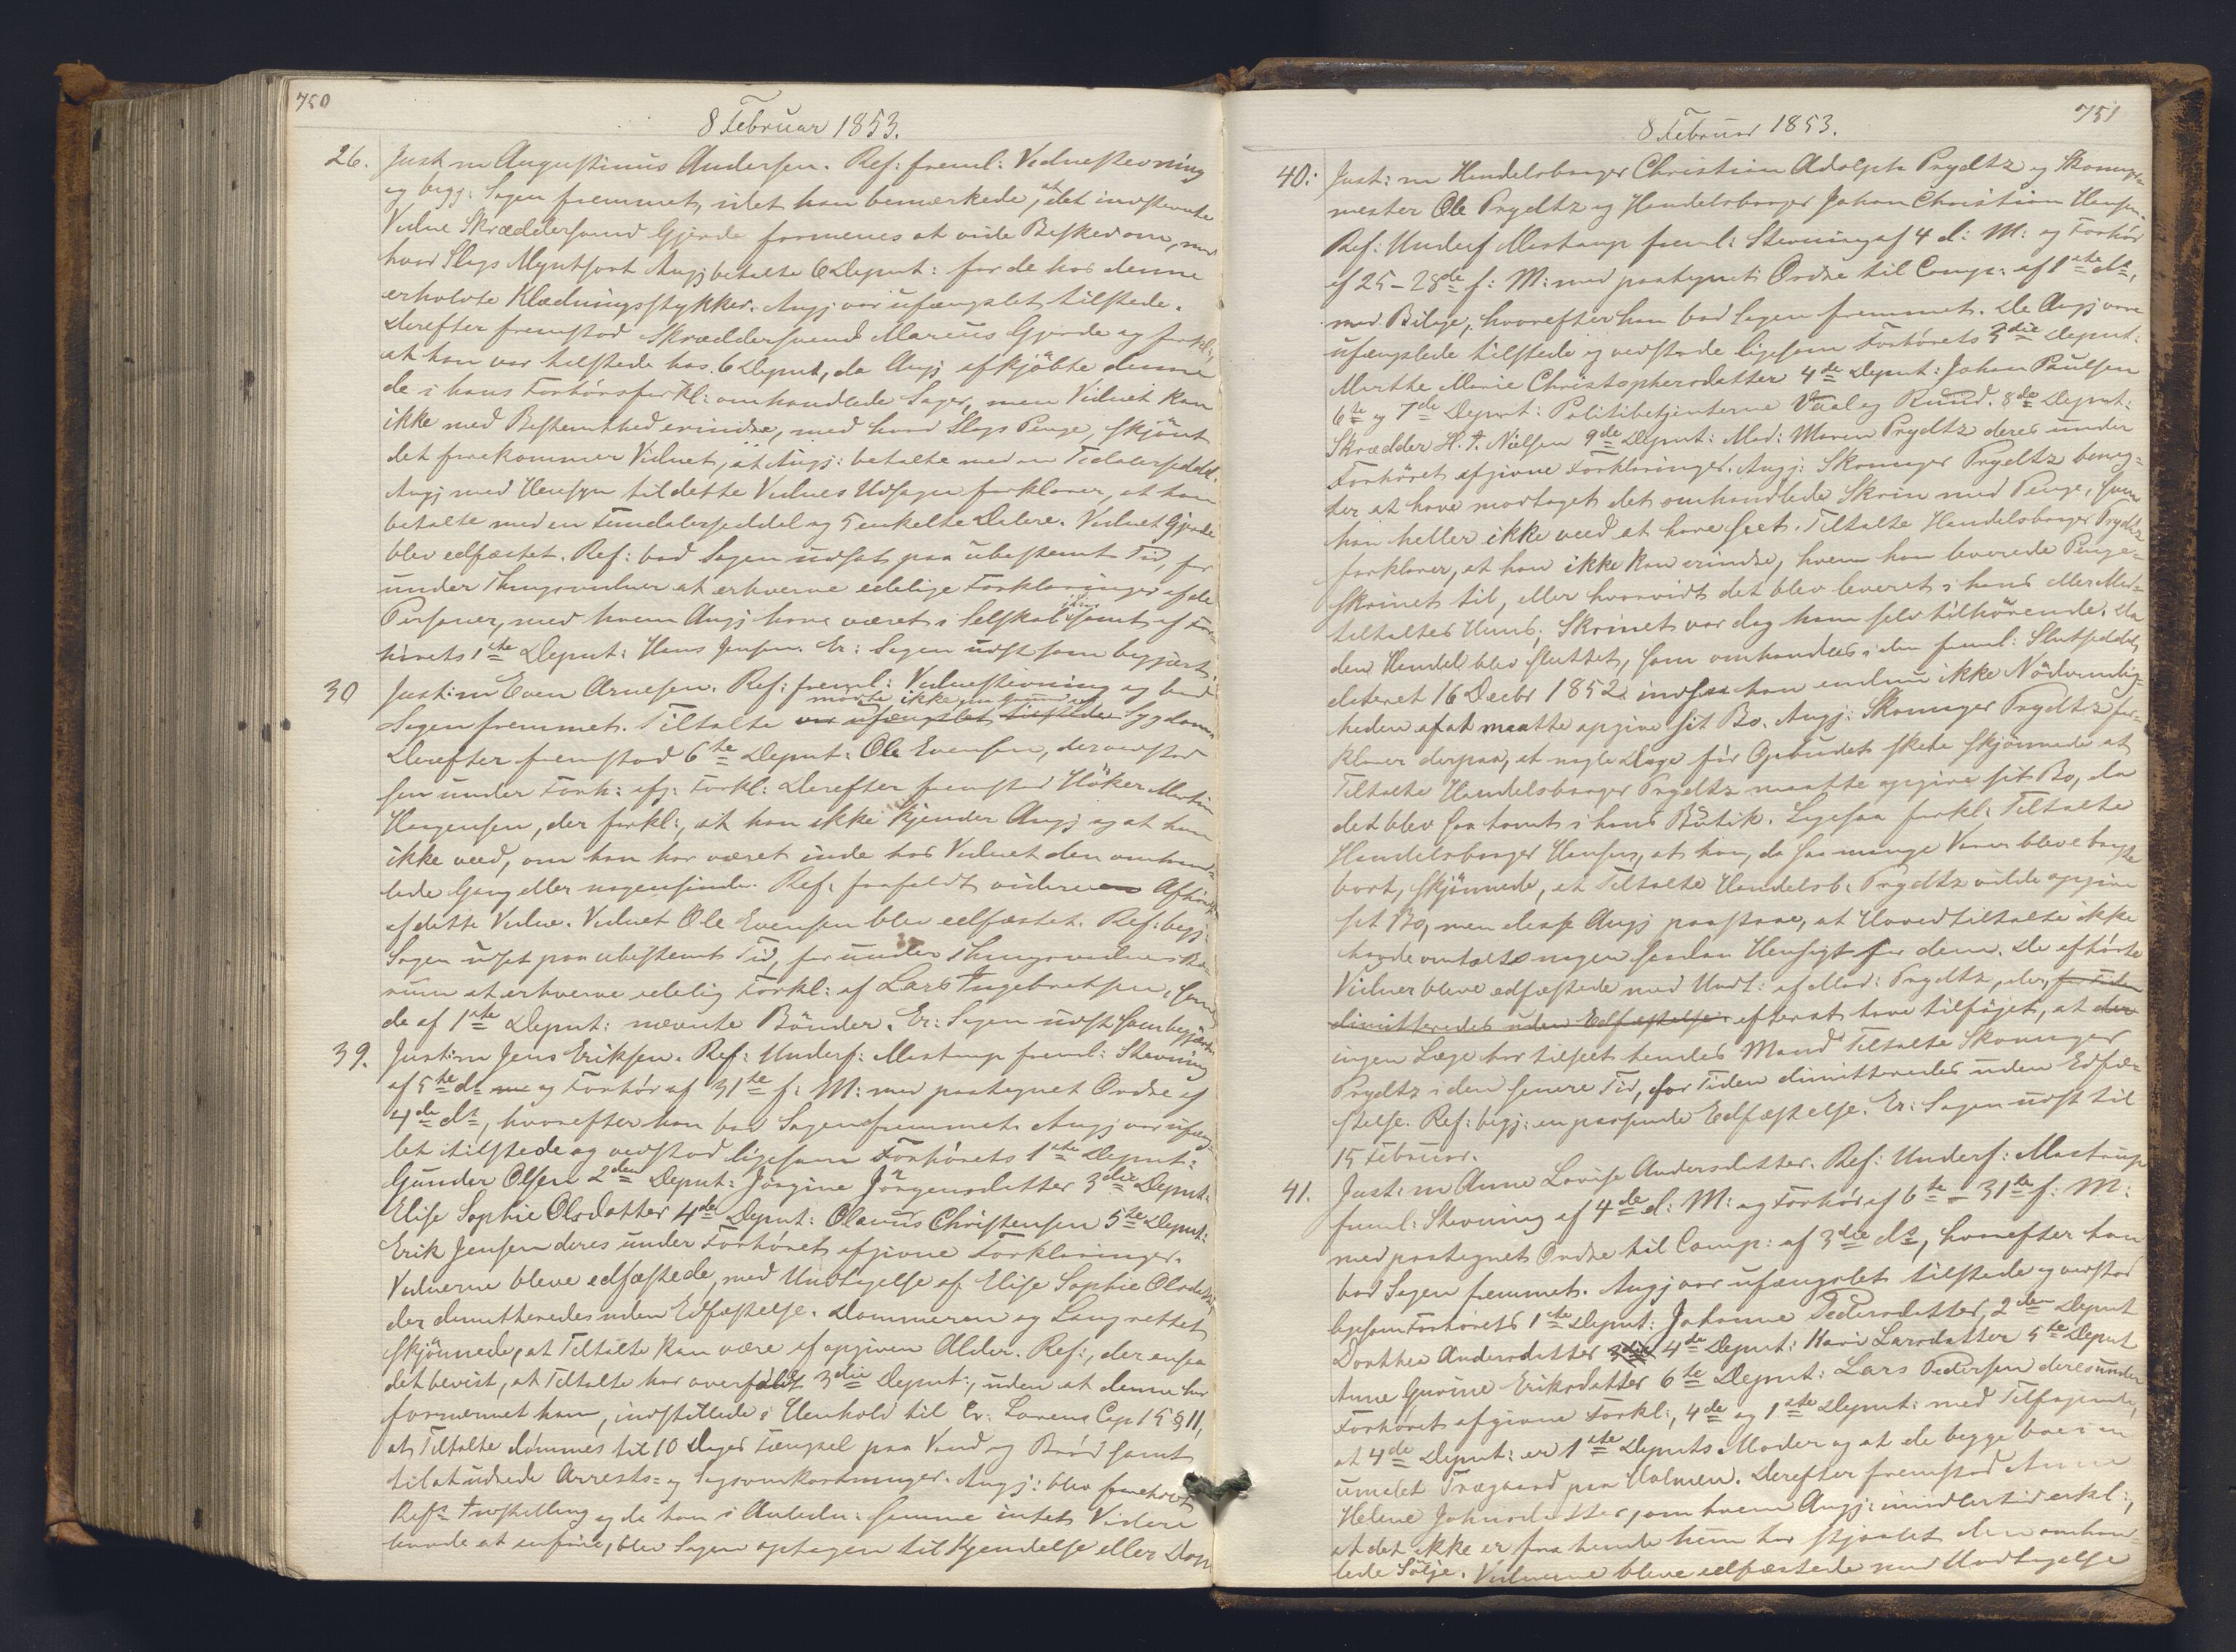 750
8 Februar 1853.
26. Just: m Augustinus Andersen. Ref: freml: Vidnestevning
og begj: Sagen fremmet, idet han bemærkede, at det indstevnte
Vidne Skræddersvend Gjerde formenes at vide Besked om, med
hvad Slags Myntsort Angj betalte 6 Deput: for de hos denne
erholdte Klædningsstykker. Angj: var ufængslet tilstede.
Derefter fremstod Skræddersvend Marius Gjerde og forkl:,
at han var tilstede hos 6 Deput, da Angj afkjöbte denne
de i hans Forhörsforkl: omhandlede Sager, men Vidnet kan
ikke med Bestemthed erindre, med hvad Slags Penge, skjönt
det forekommer Vidnet, at Angj: betalte med en Tidalerseddel.
Angj med Hensyn til dette Vidnes Udsagn forklarer, at han
betalte med en Femdalerseddel og 5 enkelte Dalere. Vidnet Gjerde
blev edfæstet. Ref: bad Sagen udsat paa ubestemt Tid, for
under Thingsvidner at erhverve edelige Forklaringer af de
Personer, med hvem Angj have været i Selskab samt af For-
hörets 1ste Deput: Hans Jensen. Er: Sagen udst som begjært.
30 Just: m Even Arnesen. Ref: freml: Vidnestevning og bad
Sagen fremmet. Tiltalte var ufængslet tilstede mödte ikke paa Grund af Sygdom.
Derefter fremstod 6te Deput: Ole Evensen, der vedstod
sin under Forh: afg: Forkl: Derefter fremstod Höker Martin
Haagensen, der forkl:, at han ikke kjender Angj og at han
ikke veed, om han har været inde hos Vidnet den omhand-
lede Gang eller nogensinde. Ref: frafaldt videre Afhörelse
af dette Vidne. Vidnet Ole Evensen blev edfæstet. Ref: begj:
Sagen udsat paa ubestemt Tid, for under Thingsvidner i Bæ-
rum at erhverve edelig Forkl: af Lars Ingebretsen, samt
de af 1ste Deput: nævnte Bönder. Er: Sagen udst som begjært.
39. Just: m Jens Eriksen. Ref: Underf: Mastrup freml: Stevning
af 5te ds og Forhör af 31te f: M: med paategnet Ordre af
4de ds, hvorefter han bad Sagen fremmet. Angj var ufængs-
let tilstede og vedstod ligesom Forhörets 1ste Deput:
Gunder Olsen 2den Deput: Jörgine Jörgensdatter 3die Deput:
Elise Sophie Olsdatter 4de Deput: Olavus Christensen 5te Deput:
Erik Jensen deres under Forhöret afgivne Forklaringer.
Vidnerne bleve edfæstede, med Undtagelse af Elise Sophie Olsdatter,
der dimitteredes uden Edfæstelse. Dommeren og Laugrettet
skjönnede, at Tiltalte kan være af opgiven Alder. Ref:, der ansaa
det bevist, at Tiltalte har overfaldt 3die Deput:, uden at denne har
fornærmet ham, indstillede i Henhold til Cr: Lovens Cap 15 § 11,
at Tiltalte dömmes til 10 Dages Fængsel paa Vand og Bröd samt
til at udrede Arrests- og Sagsomkostninger. Angj: blev forehold
Refs Indstilling og da han i Anledn: samme intet Videre
havde at anföre, blev Sagen optagen til Kjendelse eller Dom
751
8 Februar 1853.
40: Just: m Handelsborger Christian Adolph Prydtz og Skomager-
mester Ole Prydtz og Handelsborger Johan Christian Hansen.
Ref: Underf Mastrup freml: Stevning af 4 d: M: og Forhör
af 25–28de f: M: med paategnet Ordre til Comp: af 1ste ds,
med Bilage, hvorefter han bad Sagen fremmet. De Angj vare
ufængslede tilstede og vedstode ligesom Forhörets 3die Deput:
Marthe Marie Christophersdatter 4de Deput: Johan Paulsen
6te og 7de Deput: Politibetjenterne Vaal og Rund. 8de Deput:
Skrædder H. A. Nielsen 9de Deput: Mad: Maren Prydtz deres under
Forhöret afgivne Forklaringer. Angj: Skomager Prydtz benæg-
ter at have modtaget det omhandlede Skrin med Penge, som
han heller ikke veed at have seet. Tiltalte Handelsborger Prydtz
forklarer, at han ikke kan erindre, hvem han leverede Penge-
skrinet til, eller hvorvidt det blev leveret i hans eller Med-
tiltaltes Huus; Skrinet var dog ham selv tilhörende. Da
den Handel blev sluttet, som omhandles i den freml: Slutseddel,
dateret 16 Decbr 1852 indsaa han endnu ikke Nödvendig-
heden af at maatte opgive sit Bo. Angj: Skomager Prydtz for-
klarer derpaa, at nogle Dage för Opbudet skete skjönnede at
Tiltalte Handelsborger Prydtz maatte opgive sit Bo, da
det blev saa tomt i hans Butik. Ligesaa forkl: Tiltalte
Handelsborger Hansen, at han, da saa mange Varer bleve bragte
bort, skjönnede, at Tiltalte Handelsb: Prydtz vilde opgive
sit Bo, men disse Angj paastaae, at Hovedtiltalte ikke
havde omtalt nogen saadan Hensigt for dem. De afhörte
Vidner bleve edfæstede med Undt: af Mad: Prydtz, der, for Tiden
dimitteredes uden Edfæstelse efterat have tilföjet, at der
ingen Læge har tilseet hendes Mand Tiltalte Skomager
Prydtz i den senere Tid, for Tiden dimitteredes uden Edfæ-
stelse. Ref: begj: en passende Edfæstelse. Er: Sagen udst til
15 Februar.
41. Just: m Anne Lovise Andersdatter. Ref: Underf: Mastrup
freml: Stevning af 4de d: M: og Forhör af 6te – 31te f: M:
med paategnet Ordre til Comp: af 3die ds, hvorefter han
bad Sagen fremmet. Angj var ufængslet tilstede og vedstod
ligesom Forhörets 1ste Deput: Johanne Pedersdatter, 2den Deput
Dorthea Andersdatter 3die 4de Deput: Kari Larsdatter 5te Deput
Anne Gurine Eriksdatter 6te Deput: Lars Pedersen deres under
Forhöret afgivne Forkl:, 4de og 1ste Deput: med Tilföiende,
at 4de Deput: er 1ste Deputs Moder og at de begge boe i en
umalet Trægaard paa Holmen. Derefter fremstod Anne
Helene Johnsdatter, om hvem Angj: imidlertid erkl:,
at det ikke er fra hende hun har stjaalet den omhand-
lede Sölje. Vidnerne bleve edfæstede med Undtagelse